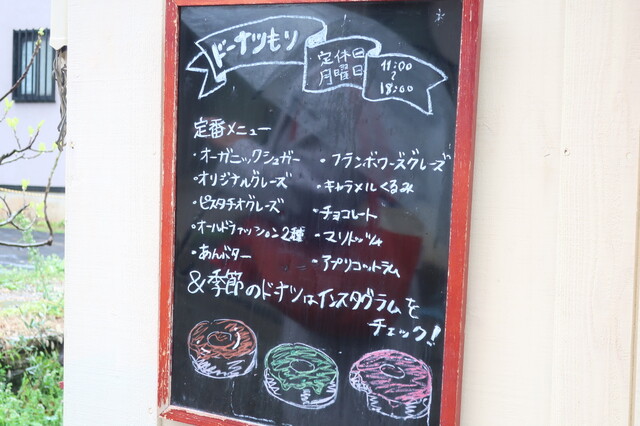 ドーナツもり
定休日
月曜日
11:00
〜
18:00
定番メニュー
・オーガニックシュガー
・オリジナルグレーズ
・ピスタチオグレーズ
・オールドファッション2種
・あんバター
・フランボワーズグレーズ
・キャラメルくるみ
・チョコレート
・マリトッツォ
・アプリコットラム
&季節のドーナツはインスタグラムを
チェック!